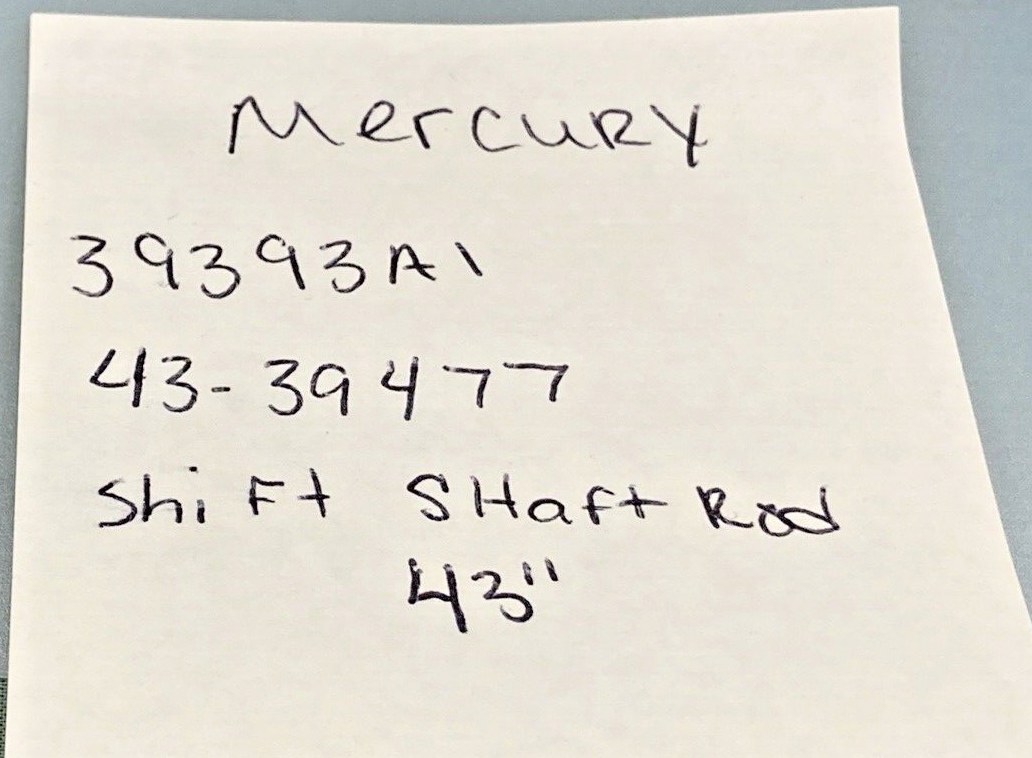 Mercury
39393A1
43-39477
Shift SHaft Rod
43"